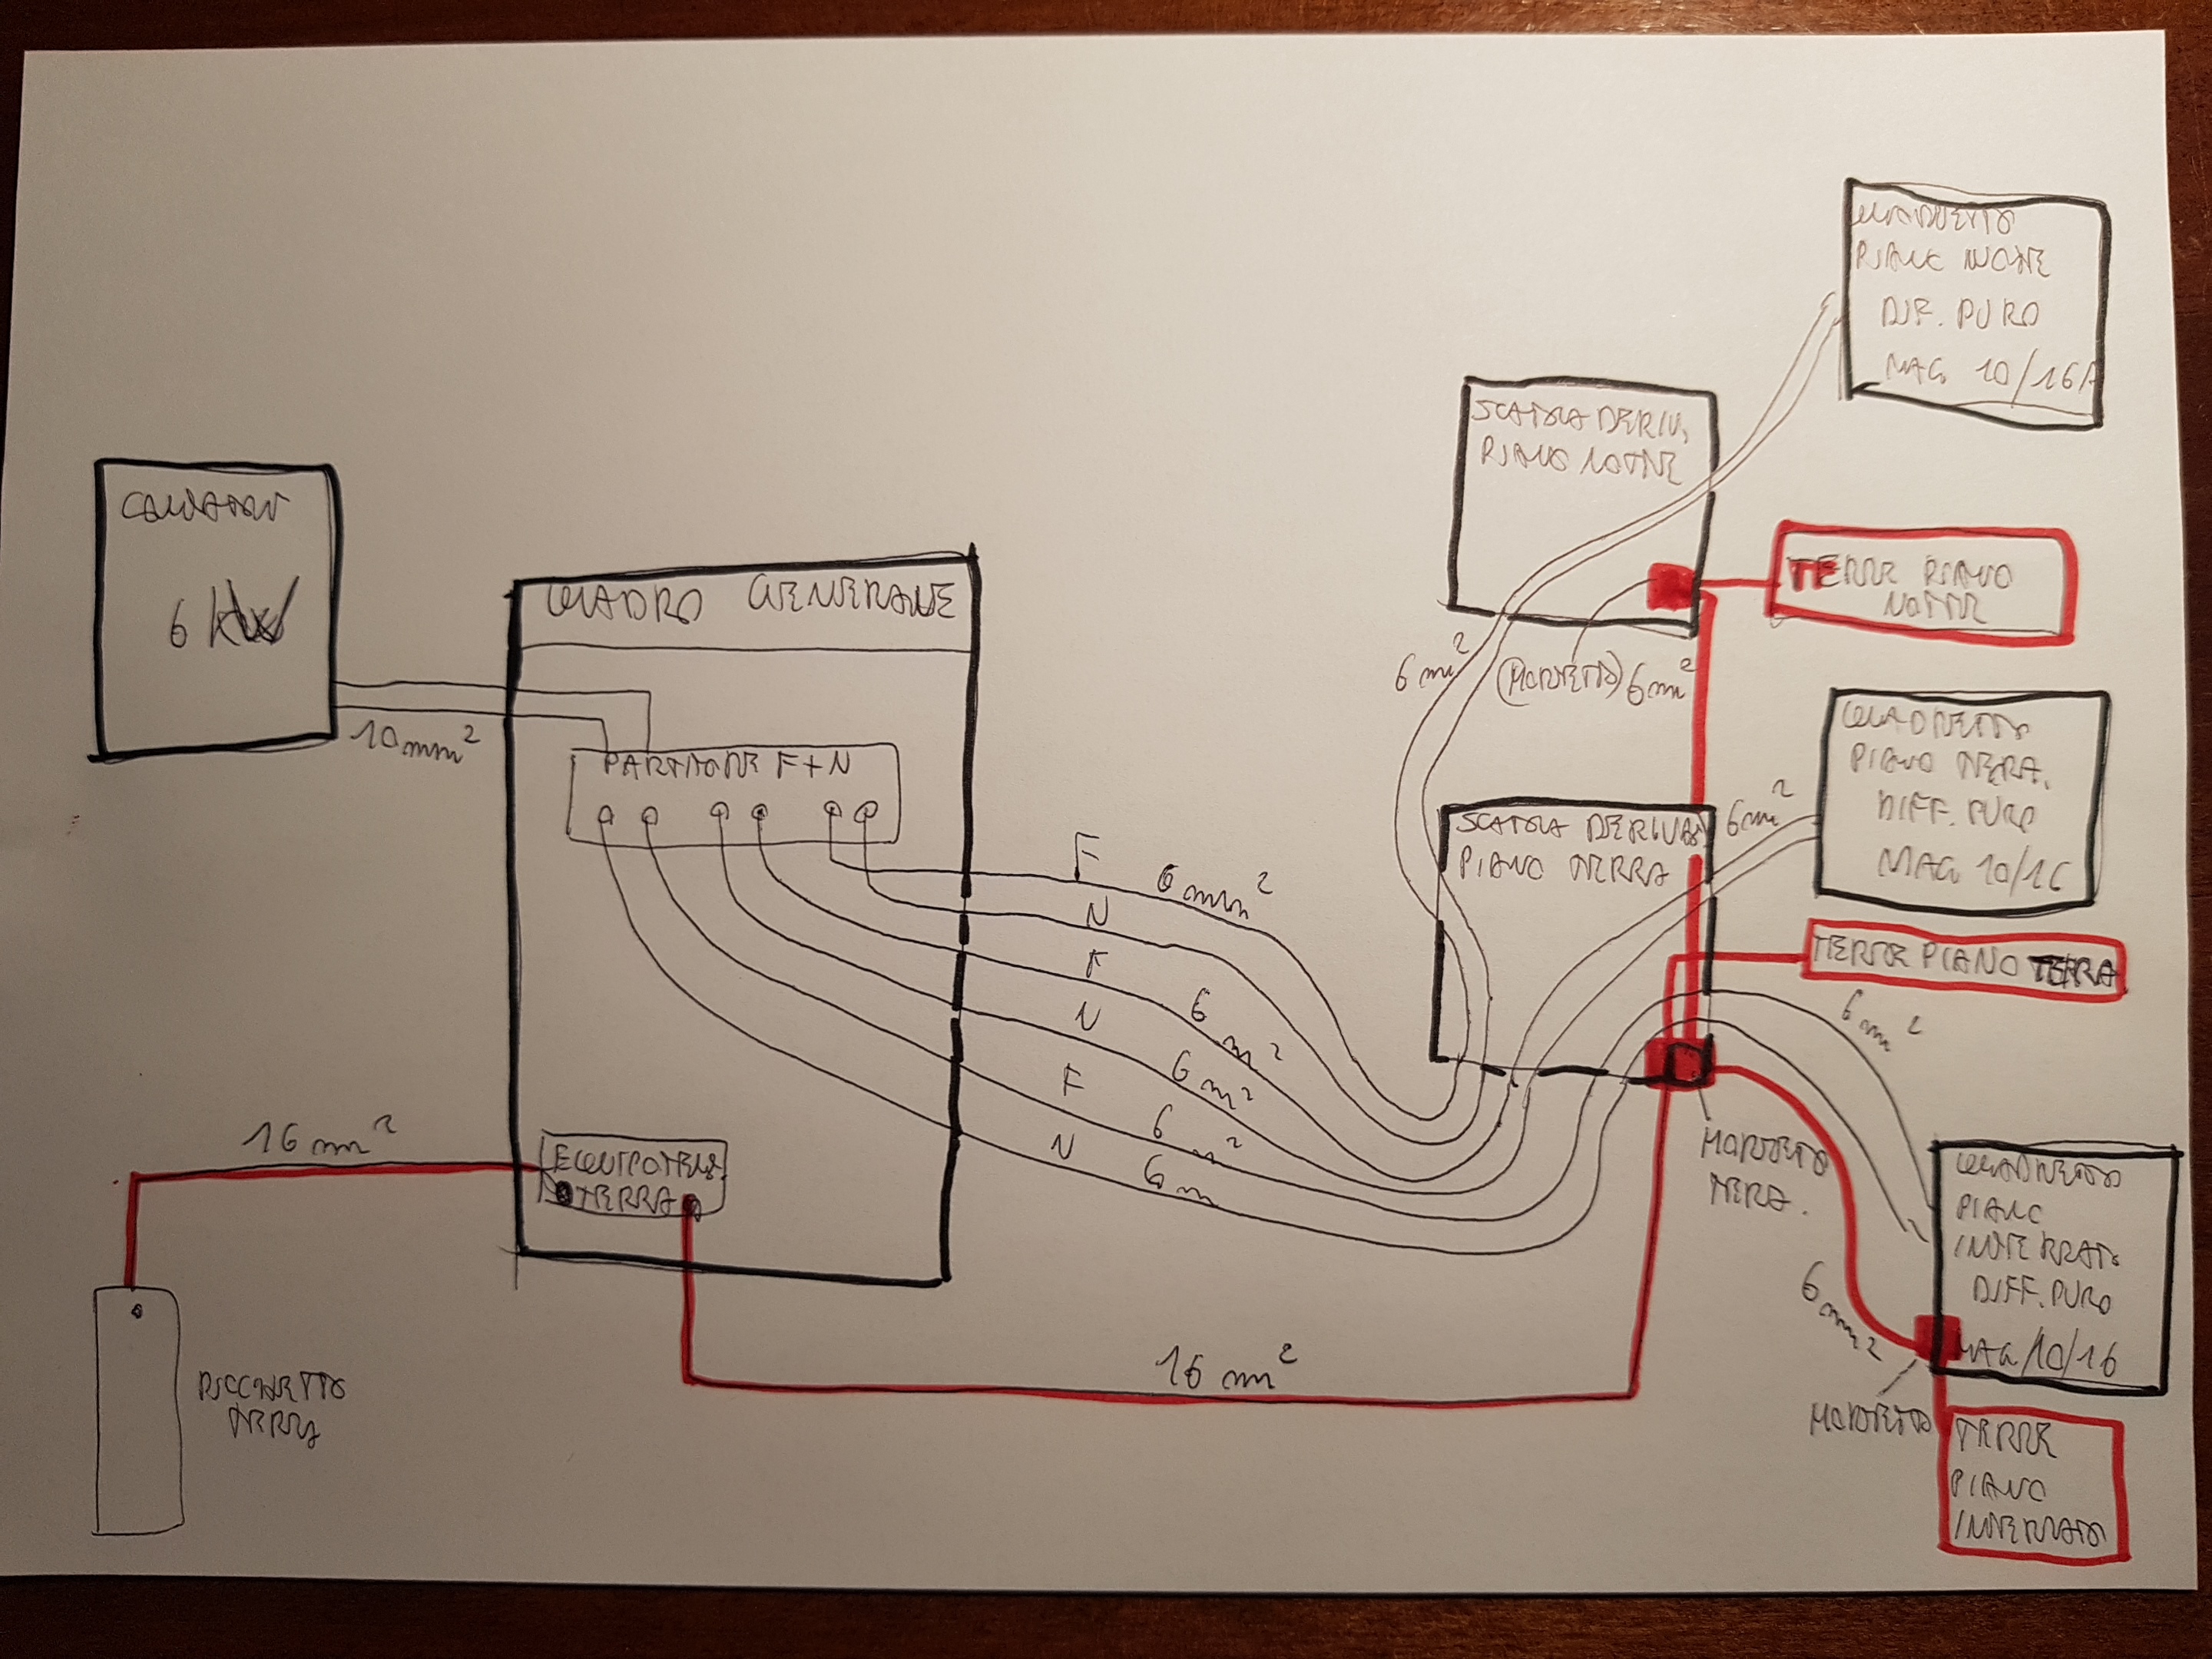 CONTATORE
6 kW
10 mm²
QUADRO GENERALE
PARTITORE F+N
EQUIPOTENZ.
TERRA
16 mm²
DISC
TERRA
F
6 mm²
N
F
6 mm²
N
6 mm²
F
6 mm²
N
6 m
16 mm²
QUADRETTO
PIANO NOTTE
DIF. PURO
MAG 10/16A
SCATOLA DERIV.
PIANO NOTTE
TERRE PIANO
NOTTE
6 mm²
(MORSETTO) 6 mm²
QUADRETTO
PIANO TERRA.
DIFF. PURO
MAG 10/16
6 mm²
SCATOLA DERIVAZ
PIANO TERRA
TERRE PIANO TERRA
6 m²
MORSETTO
TERRA.
QUADRETTO
PIANO
INTERRATO
DIFF. PURO
MAG/10/16
6 mm²
MORSETTO
TERRE
PIANO
INTERRATO